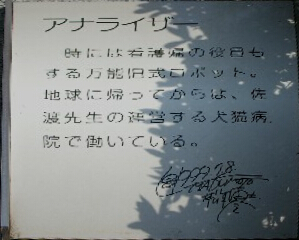 アナライザー
時には看護婦の役目も
する万能旧式ロボット。
地球に帰ってからは、佐
渡先生の運営する犬猫病
院で働いている。